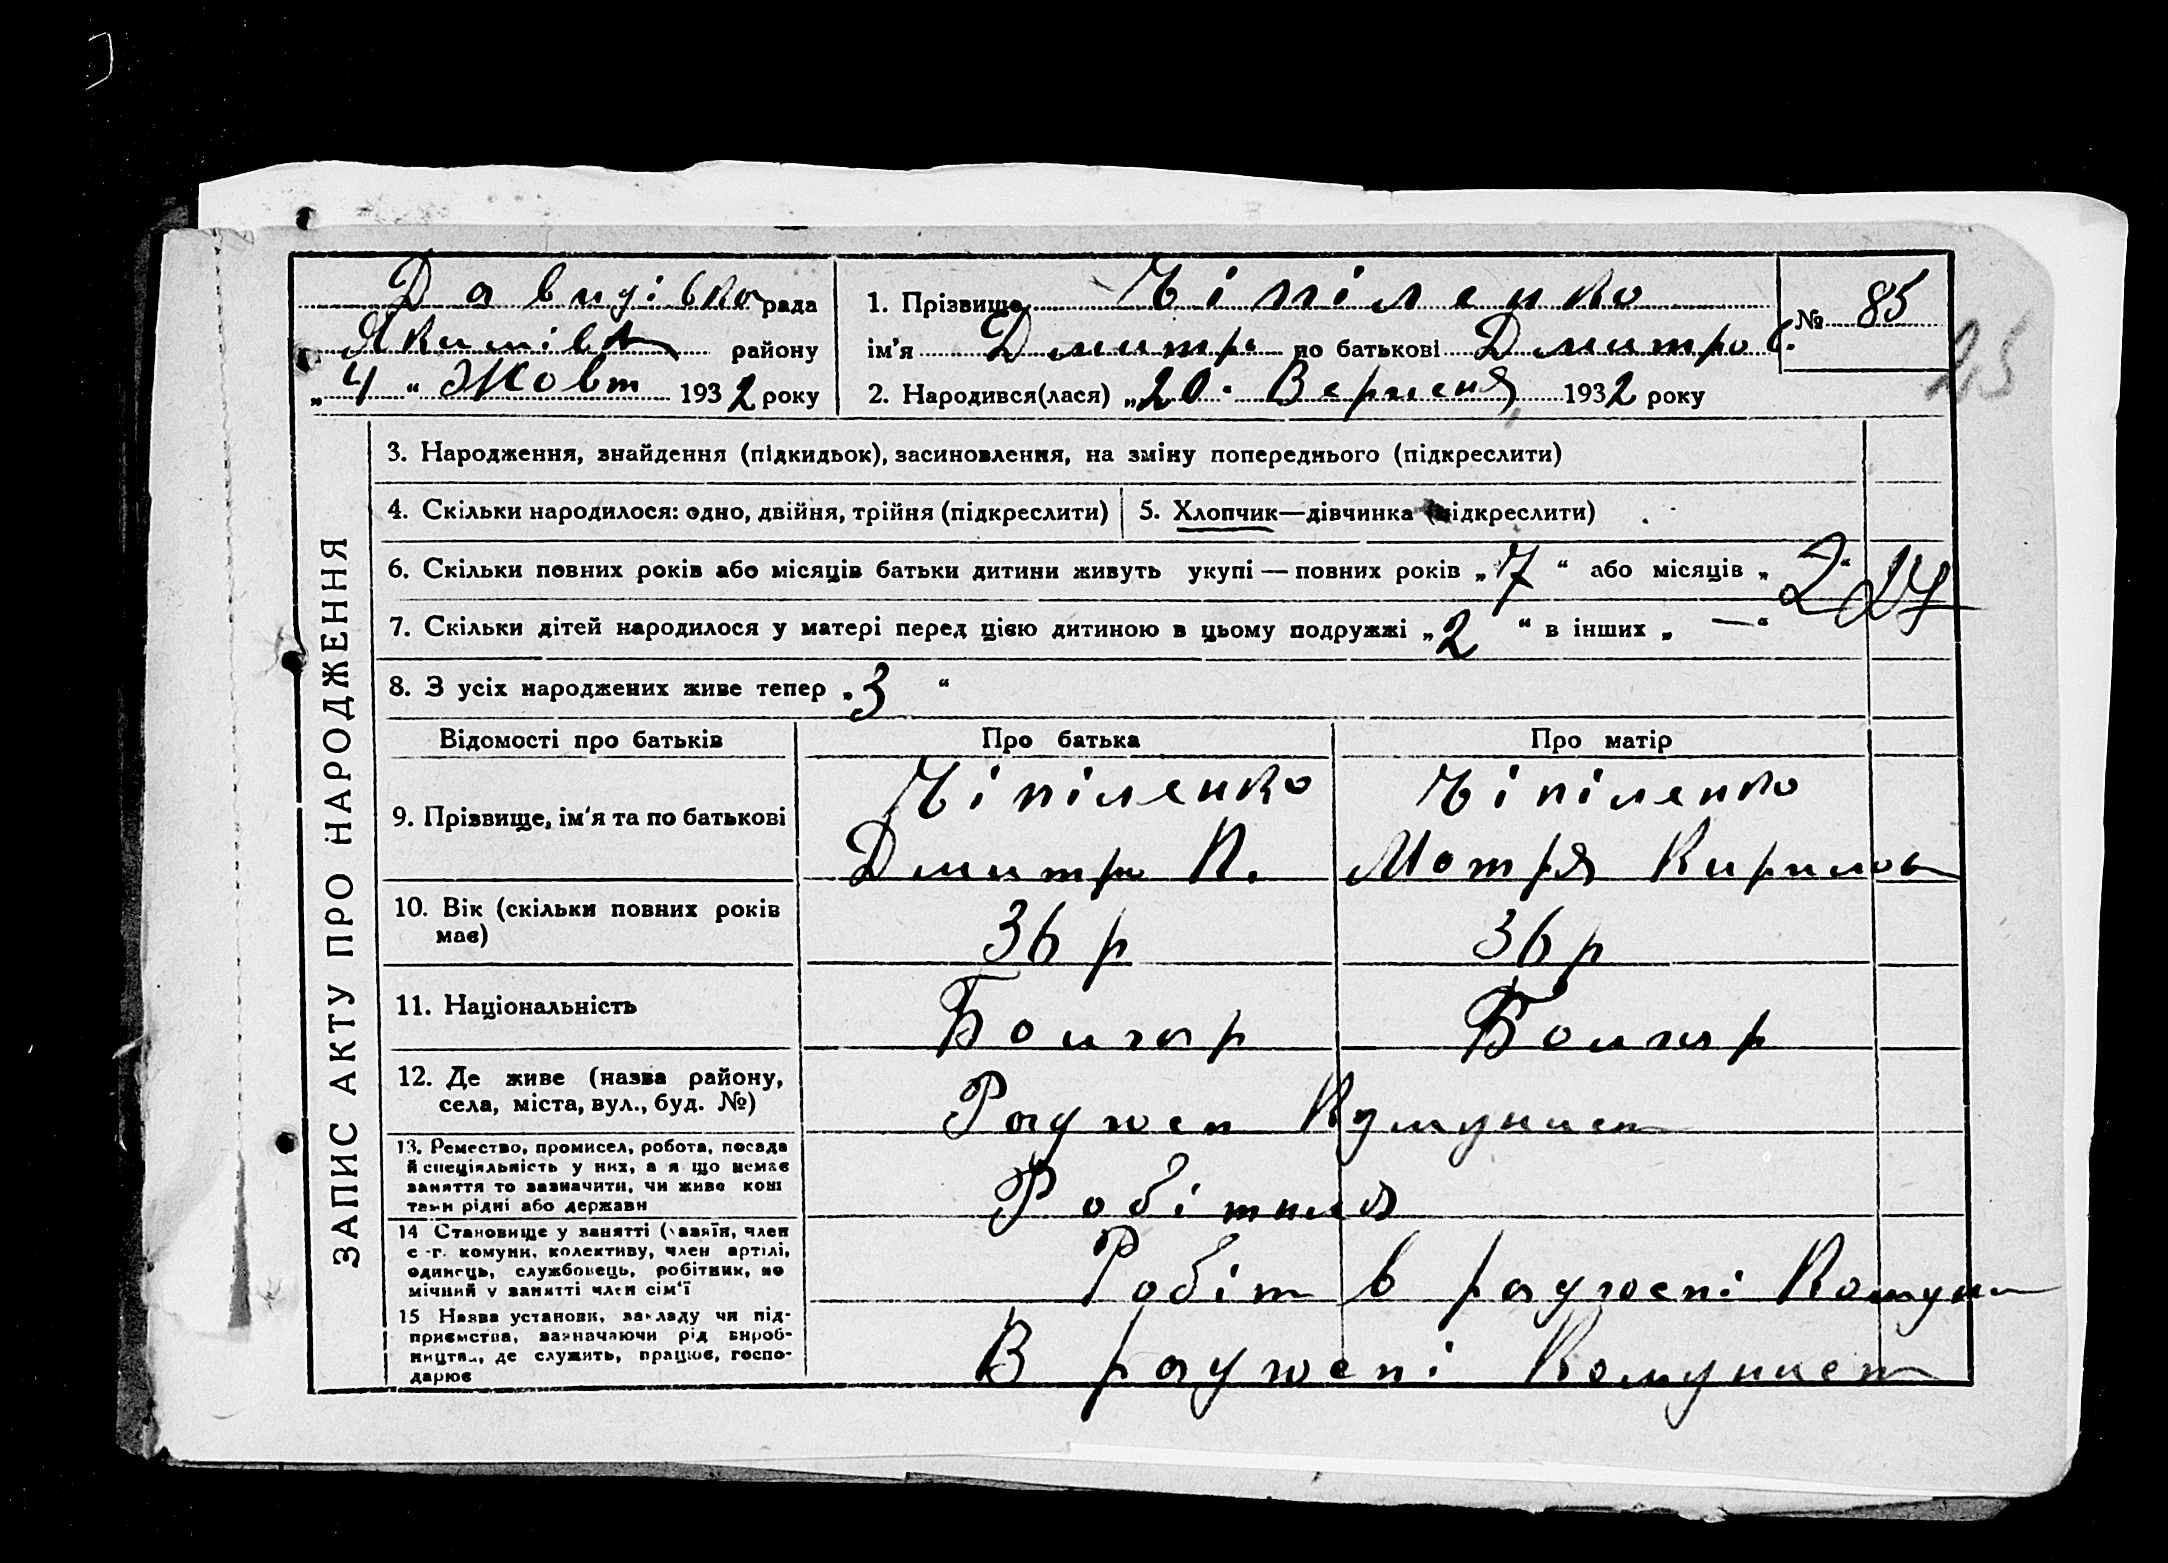 Давидівка рада
Якимівк району
„4“ Жовт 1932 року
1. Прізвище Чіпіленко
ім'я Дмитро по батькові Дмитров.
2. Народився(лася) „20“ Вересня 1932 року
№ 85
25
ЗАПИС АКТУ ПРО НАРОДЖЕННЯ
3. Народження, знайдення (підкидьок), засиновлення, на зміну попереднього (підкреслити)
4. Скільки народилося: одно, двійня, трійня (підкреслити)
5. Хлопчик—дівчинка (підкреслити)
6. Скільки повних років або місяців батьки дитини живуть укупі — повних років „7“ або місяців „
7. Скільки дітей народилося у матері перед цією дитиною в цьому подружжі „2“ в інших „—“
8. З усіх народжених живе тепер „3“
Відомості про батьків Про батька Про матір
9. Прізвище, ім'я та по батькові
Чіпіленко
Дмитро П.
Чіпіленко
Мотря Кирилов
10. Вік (скільки повних років
має)
36 р
36 р
11. Національність
Болгар
Болгар
12. Де живе (назва району,
села, міста, вул., буд. №)
Радгосп Комунист
13. Ремество, промисел, робота, посада
й спеціяльність у них, а я що немає
заняття то зазначити, чи живе кош
тами рідні або держави
Робітниця
14 Становище у занятті (хазяїн, член
с-г. комуни, колективу, член артілі,
одинець, службовець, робітник, по
мічний у занятті член сім'ї
Робітн в радгоспі Комун
15 Назва установи, закладу чи під-
приємства, зазначаючи рід вироб-
ництва, де служить, працює, госпо-
дарює
В радгоспі Комунист